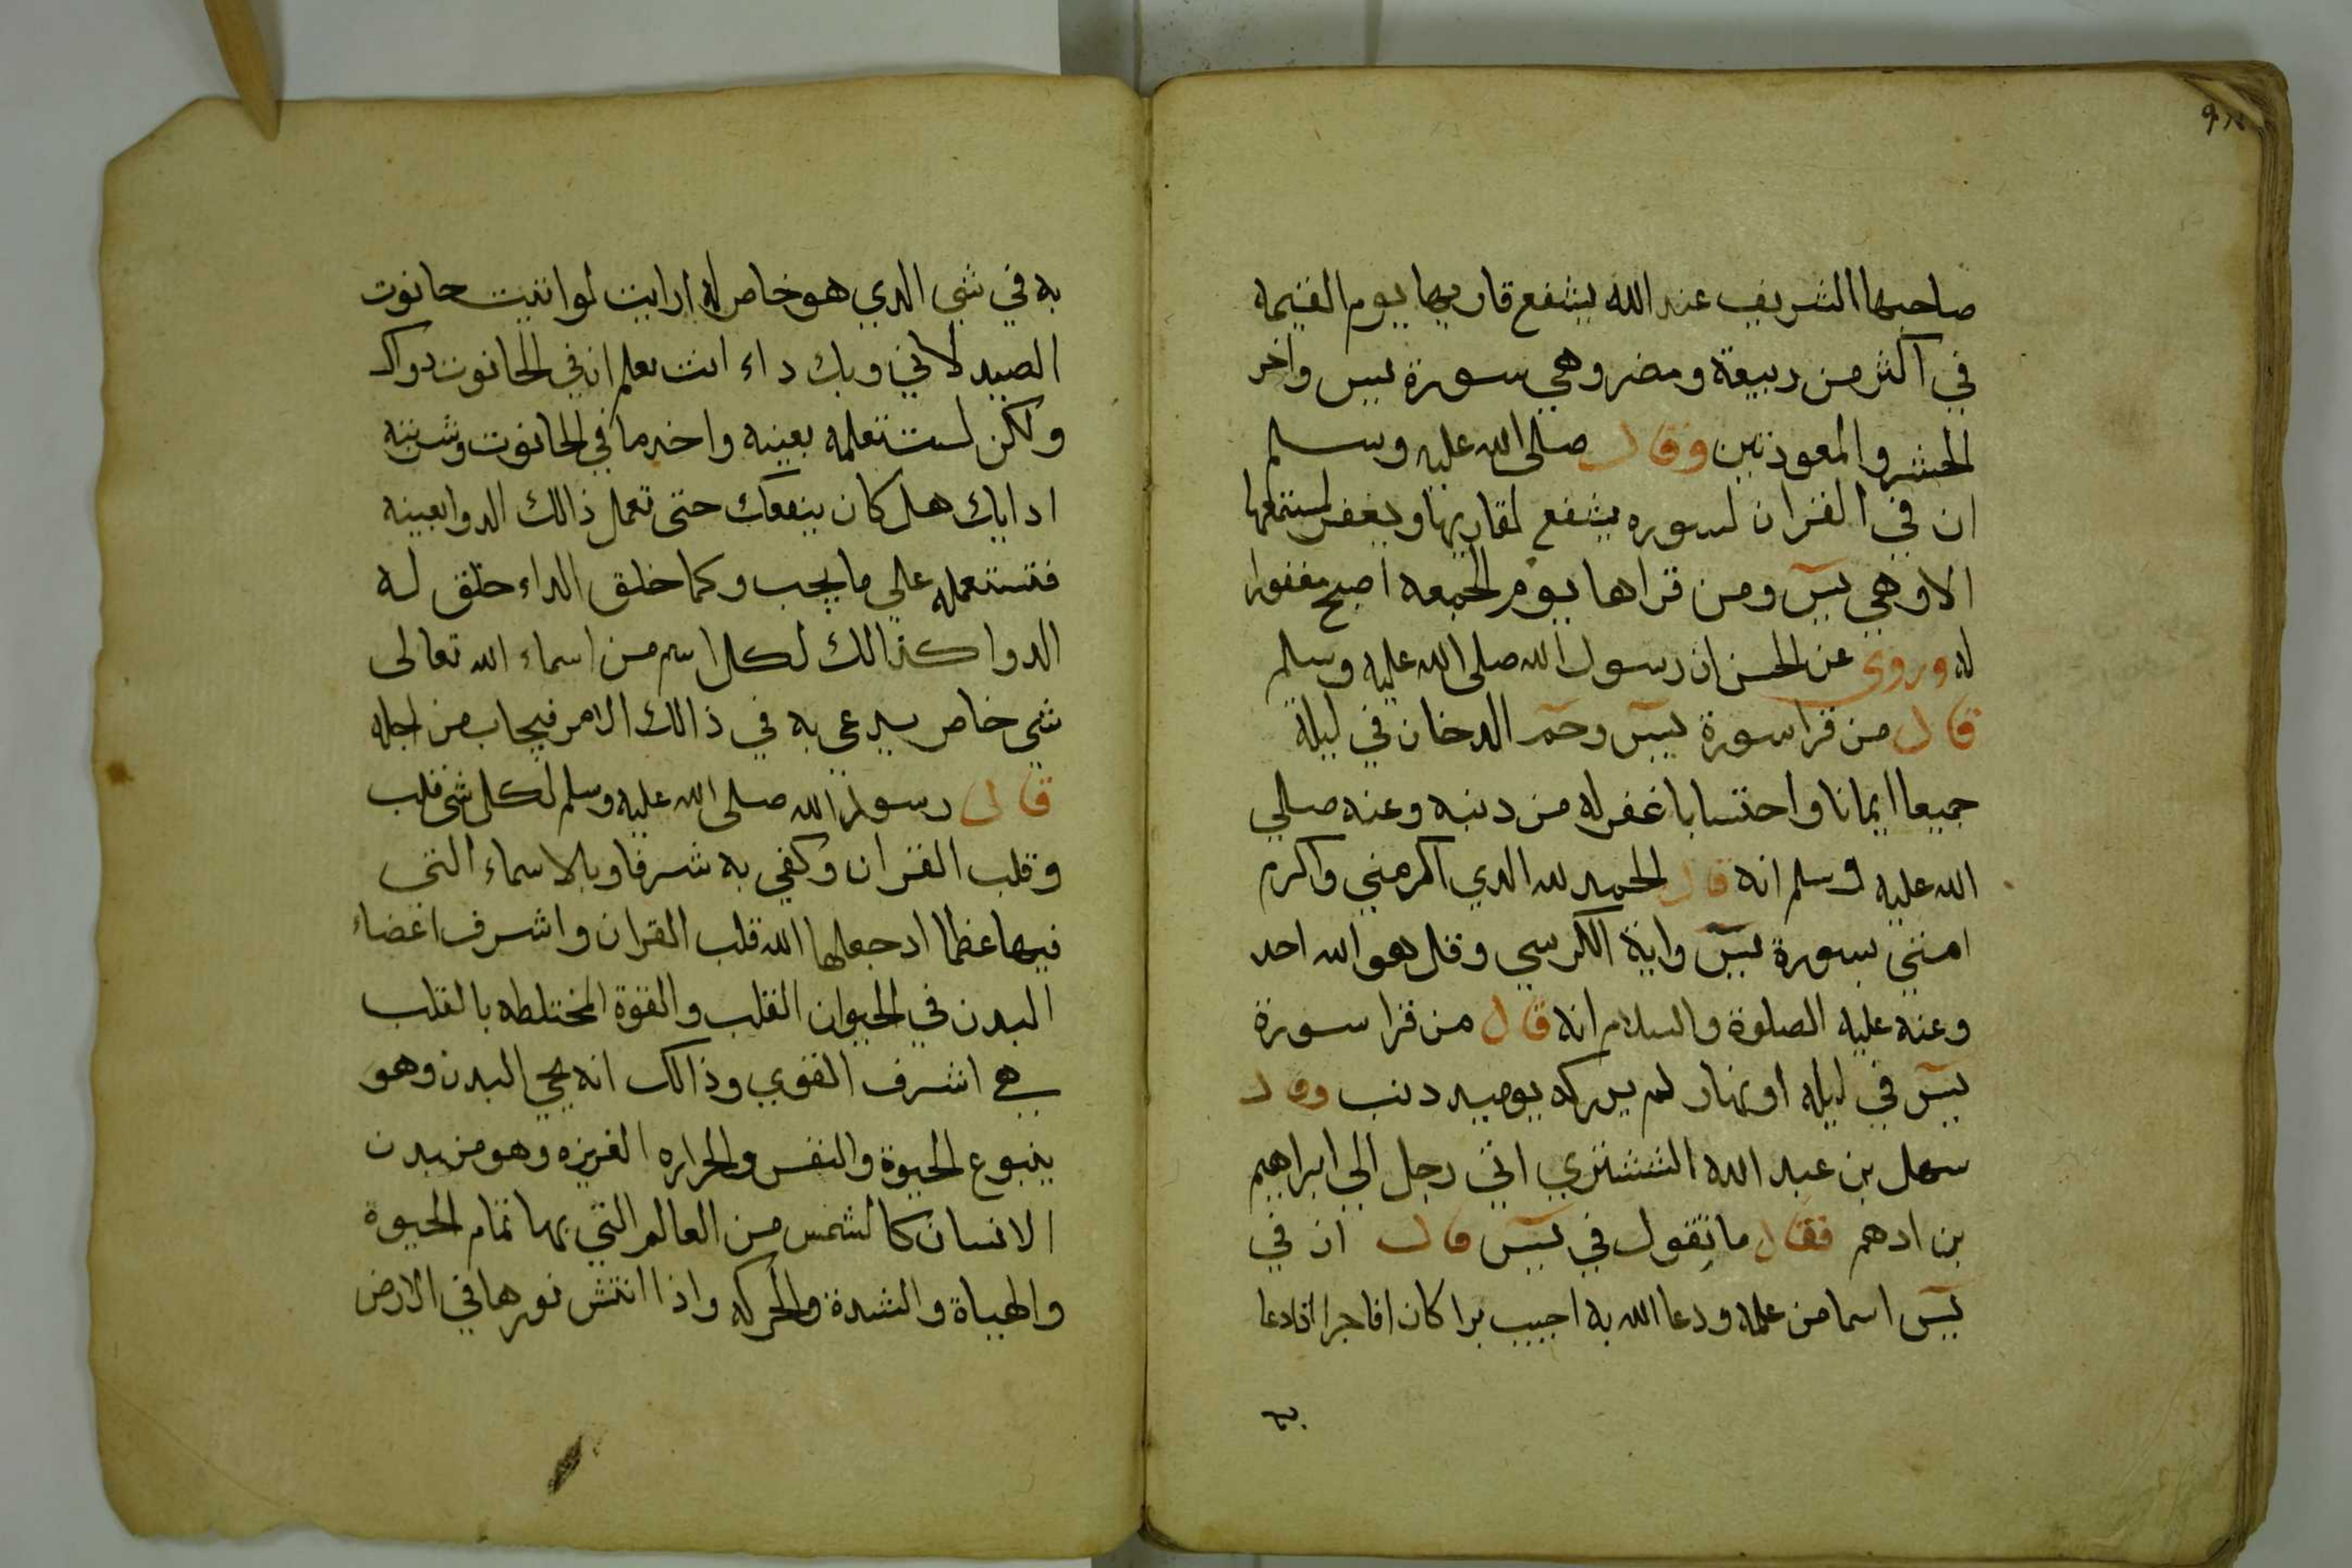 صاحبها الشريف عند الله يشفع قاريها يوم القيمه
في اكثر من ربيعة ومضر وهي سورة يس واخر
الحشر والمعوذتين وقال صلى الله عليه وسلم
ان في القران لسوره يشفع لقاريها ويغفر لمستمعها
الا وهي يس ومن قراها يوم الجمعه اصبح مغفورا
له وروى عن الحسن ان رسول الله صلى الله عليه وسلم
قال من قرا سورة يس وحم الدخان في ليلة
جميعا ايمانا واحتسابا غفر له من دنبه وعنه صلي
الله عليه وسلم انه قال الحمد لله الدي اكرمني واكرم
امتي بسورة يس واية الكرسي وقل هو الله احد
وعنه عليه الصلوة والسلام انه قال من قرا سورة
يس في ليله او نهار لم يدركه يوميد دنب وقال
سهل بن عبد الله التشتري اتي رجل الي ابراهيم
بن ادهم فقال ما تقول في يس قال ان في
يس اسما من علمه ودعا الله به اجيب برا كان او فاجرا اذا دعا
به
به في شي الدي هو خاص له ارايت لو اتيت حانوت
الصيدلاني وبك داء انت تعلم ان في الحانوت دواك
ولكن لست تعلمه بعينه واخد ما في الحانوت وشربته
ادايك هل كان ينفعك حتى تعمل ذالك الدوا بعينه
فتستعمله علي ما يجب وكما خلق الداء خلق له
الدوا كذالك لكل اسم من اسماء الله تعالى
شي خاص يدعي به في ذالك الامر فيجاب من اجله
قال رسول الله صلى الله عليه وسلم لكل شي قلب
وقلب القران وكفي به شرفا وبالاسماء التي
فيها عظما اد جعلها الله قلب القران واشرف اعضاء
البدن في الحيوان القلب والقوة المختلطه بالقلب
هي اشرف القوي وذالك انه يحي البدن وهو
ينبوع الحيوة والنفس والحراره الغريزه وهو من بدن
الانسان كالشمس من العالم التي بها تمام الحيوة
والهياة والشدة والحركه واذا انتش نورها في الارض